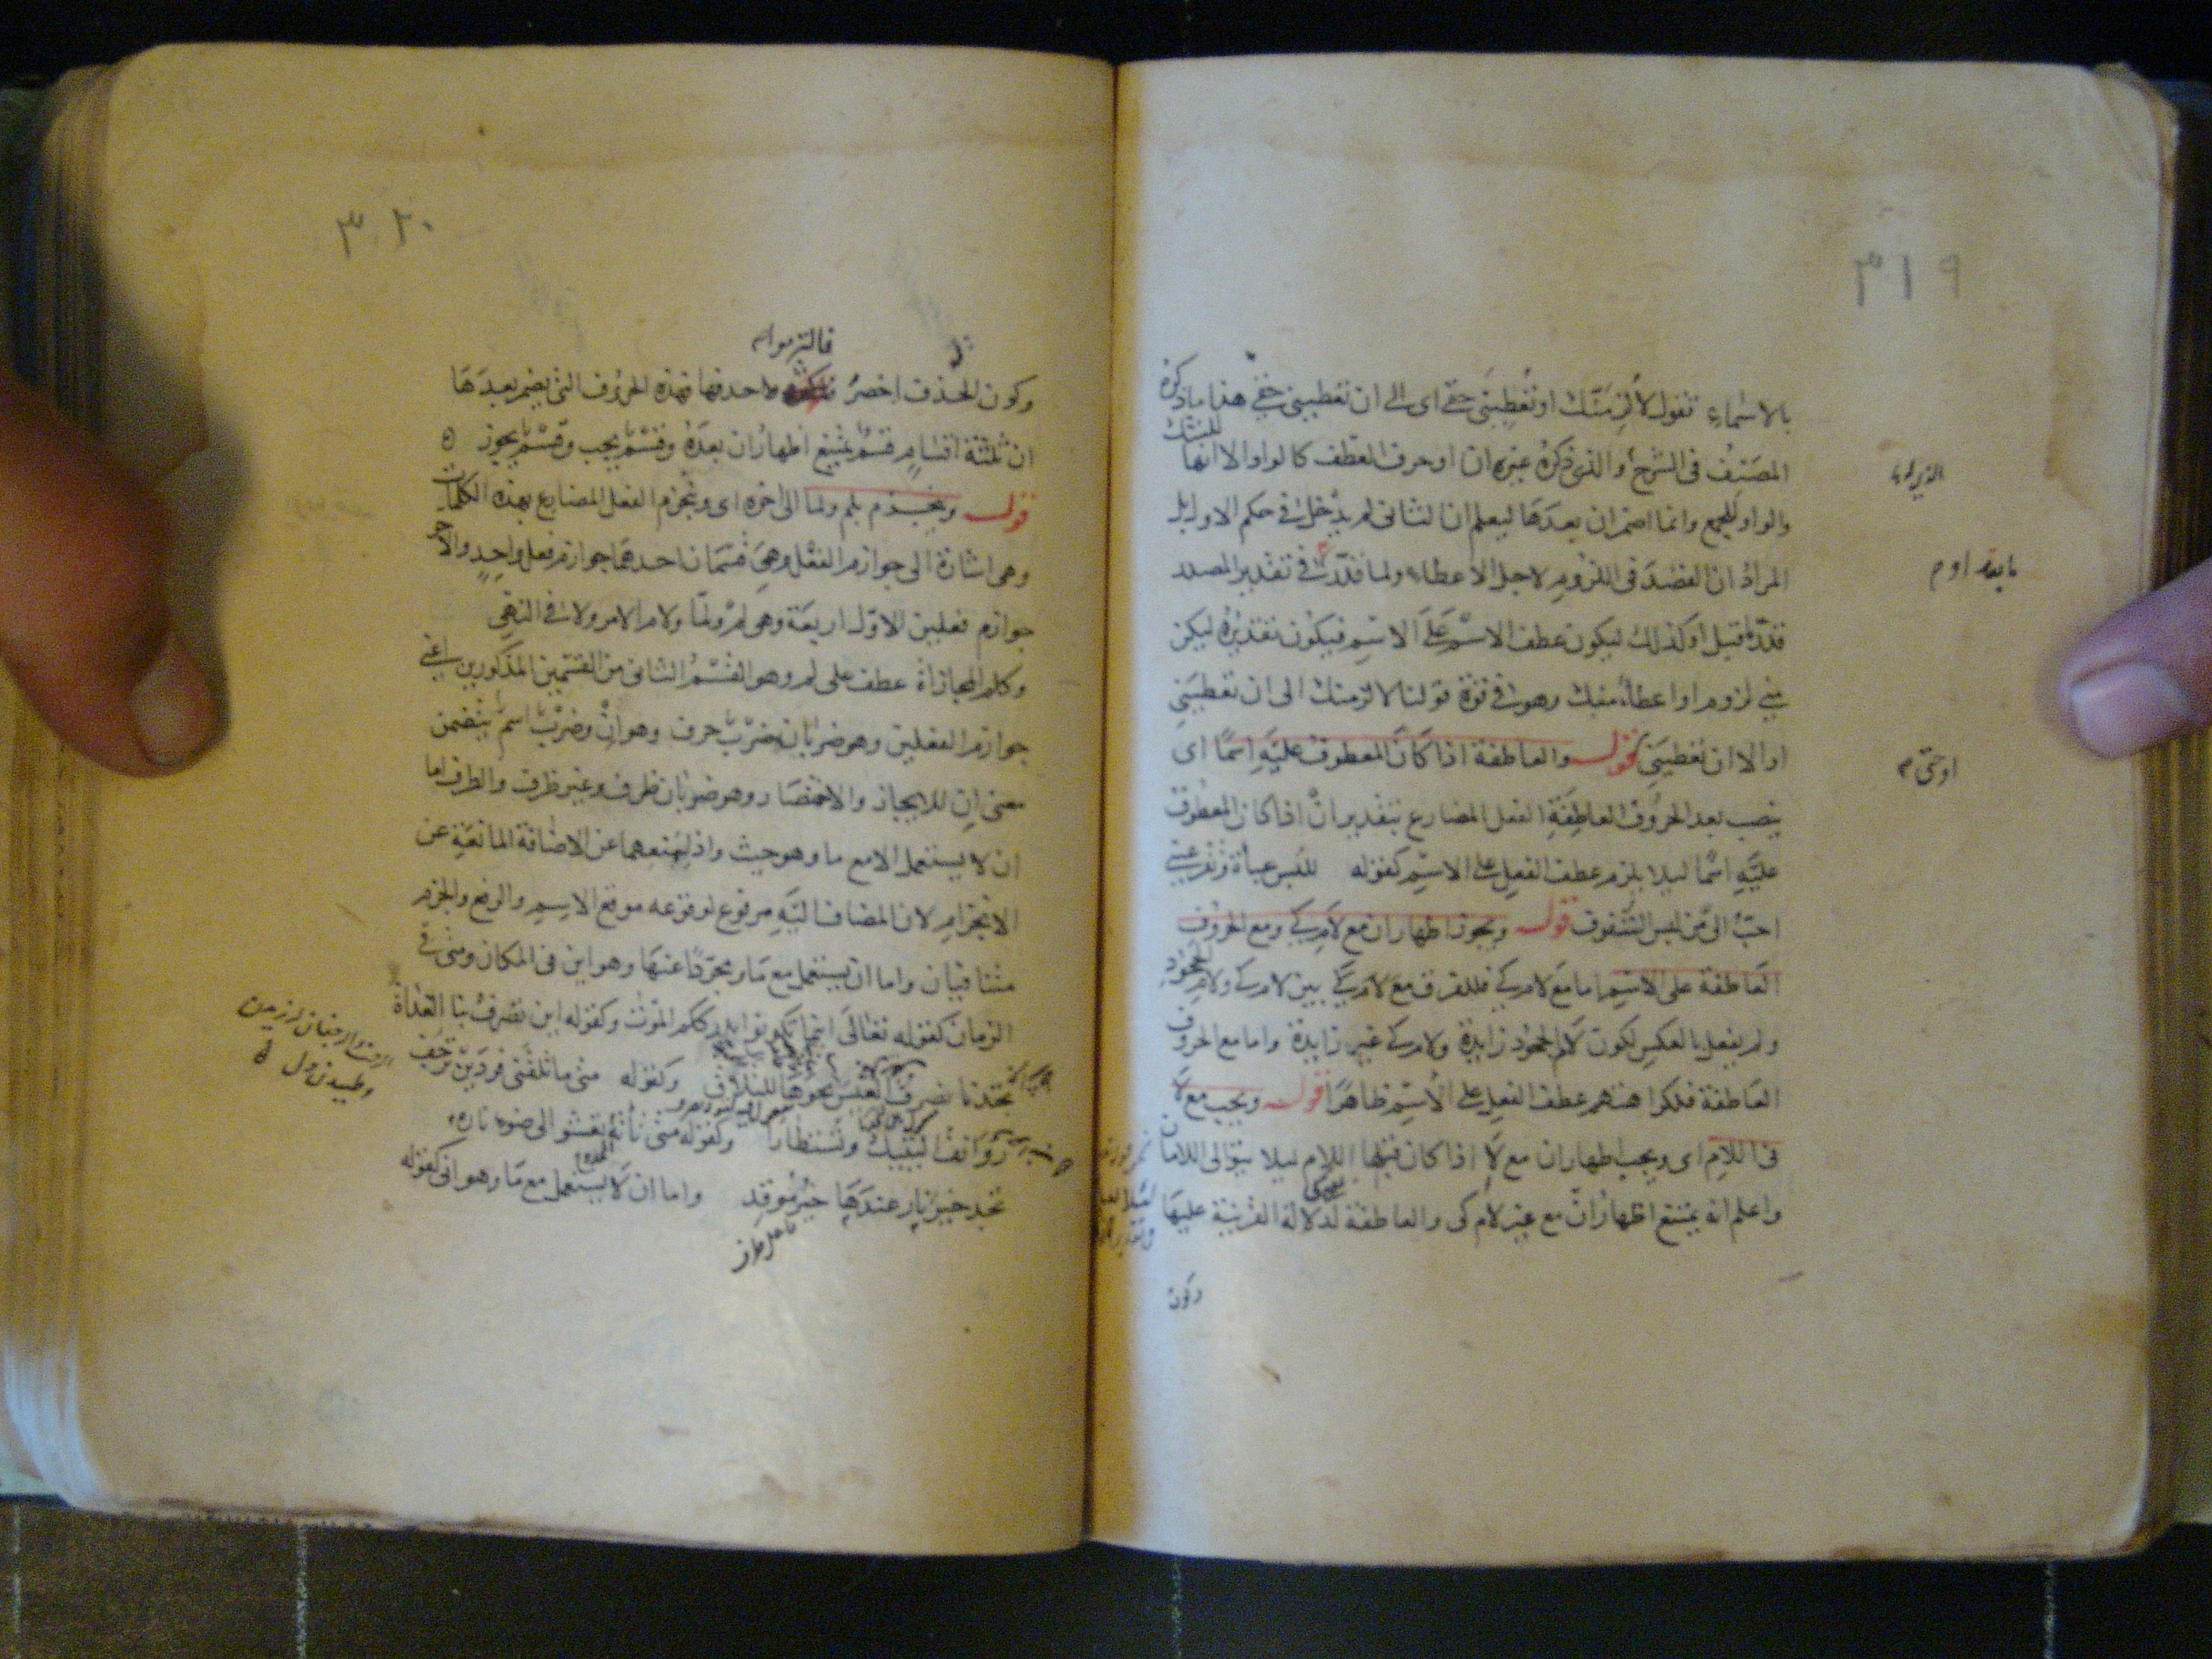 ٣١٩
بالاسماء تقول لألزمنك او تعطيني حقي اى الى ان تعطيني حقي هذا ما ذكره
المصنف فى الشرح والذى ذكره غيره ان او حرف العطف كالواو الا انها للشك
والواو للجمع وانما اضمر ان بعدها ليعلم ان الثانى لم يدخل فى حكم الاول بل
المراد ان القصد فى اللزوم لاجل الاعطاء ولما قدر فى تقدير المصدر
قدر ما قبل او كذلك ليكون عطف الاسم على الاسم فيكون تقديره ليكن
منى لزوم او اعطاء منك وهو فى قوة قولنا لالزمنك الى ان تعطينى
او الا ان تعطينى قوله والعاطفة اذا كان المعطوف عليه اسما اى
ينصب بعد الحروف العاطفة الفعل المضارع بتقدير ان اذا كان المعطوف
عليه اسما ليلا يلزم عطف الفعل على الاسم كقوله للبس عباة وتقر عينى
احب الى من لبس الشفوف قوله ويجوز اظهار ان مع لام كى ومع الحروف
العاطفة على الاسم اما مع لام كى فللفرق مع لام كى بين لام كى ولام الجحود
ولم يفعل بالعكس لكون لام الجحود زايدة ولام كى غير زايدة واما مع الحروف
العاطفة فلكراهتهم عطف الفعل على الاسم ظاهرا قوله ويجب مع لا
فى اللام اى ويجب اظهار ان مع لا اذا كان قبلها اللام ليلا يتوالى اللامان
واعلم انه يمتنع اظهار ان مع غير لام كى والعاطفة لدلالة القرينة عليها
وكون
٣٢٠
فالتزموا
وكون الحذف اخصر حذفها فهذه الحروف التى يضمر بعدها
ان ثلثة اقسام قسم يمتنع اظهار ان بعده وقسم يجب وقسم يجوز
قوله وينجزم بلم ولما الى اخره اى وينجزم الفعل المضارع بهذه الكلمات
وهى اشارة الى جوازم الفعل وهى قسمان احدهما جوازم فعل واحد والآخر
جوازم فعلين للاول اربعة وهى لم ولما ولام الامر ولا فى النهى
وكلم المجازاة عطف على لم وهو القسم الثانى من القسمين المذكورين اعنى
جوازم الفعلين وهو ضربان ضرب حرف وهو ان وضرب اسم يتضمن
معنى ان للايجاز والاختصار وهو ضربان ظرف وغير ظرف والظرف اما
ان لا يستعمل الا مع ما وهو حيث واذ ليمنعهما عن الاضافة المانعة عن
الانجزام لان المضاف اليه مرفوع لوقوعه موقع الاسم والرفع والجزم
متنافيان واما ان يستعمل مع ما ومجردا عنها وهو اين فى المكان ومتى فى
الزمان كقوله تعالى اينما تكونوا يدرككم الموت وكقوله اين تصرف بنا العداة
تجدنا نصرف العيس نحوها للتلاقى وكقوله متى ما تلقنى فردين ترجف
روانف اليتيك وتستطارا وكقوله متى تاته تعشو الى ضوء ناره
تجد خير نار عندها خير موقد واما ان لا يستعمل مع ما وهو انى كقوله